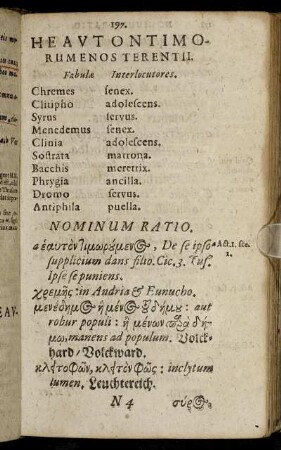 197.
HEAVTONTIMO-
RUMENOS TERENTII.
Fabulæ Interlocutores.
Chremes senex.
Clitipho adolescens.
Syrus servus.
Menedemus senex.
Clinia adolescens.
Sostrata matrona.
Bacchis meretrix.
Phrygia ancilla.
Dromo servus.
Antiphila puella.
NOMINUM RATIO.
a ἑαυτὸν τιμωρούμενος, De se ipso
supplicium dans filio. Cic. 3. Tus.
Ipse se puniens.
χρεμὴς: in Andria & Eunucho.
μενέδημος ἢ μένος δήμου: aut
robur populi: ἢ μένων δή-
μῳ, manens ad populum. Volck-
hard/ Volckward.
κλητοφῶν, κλητὸν φῶς: inclytum
lumen, Leuchtereich.
N 4 σύρος